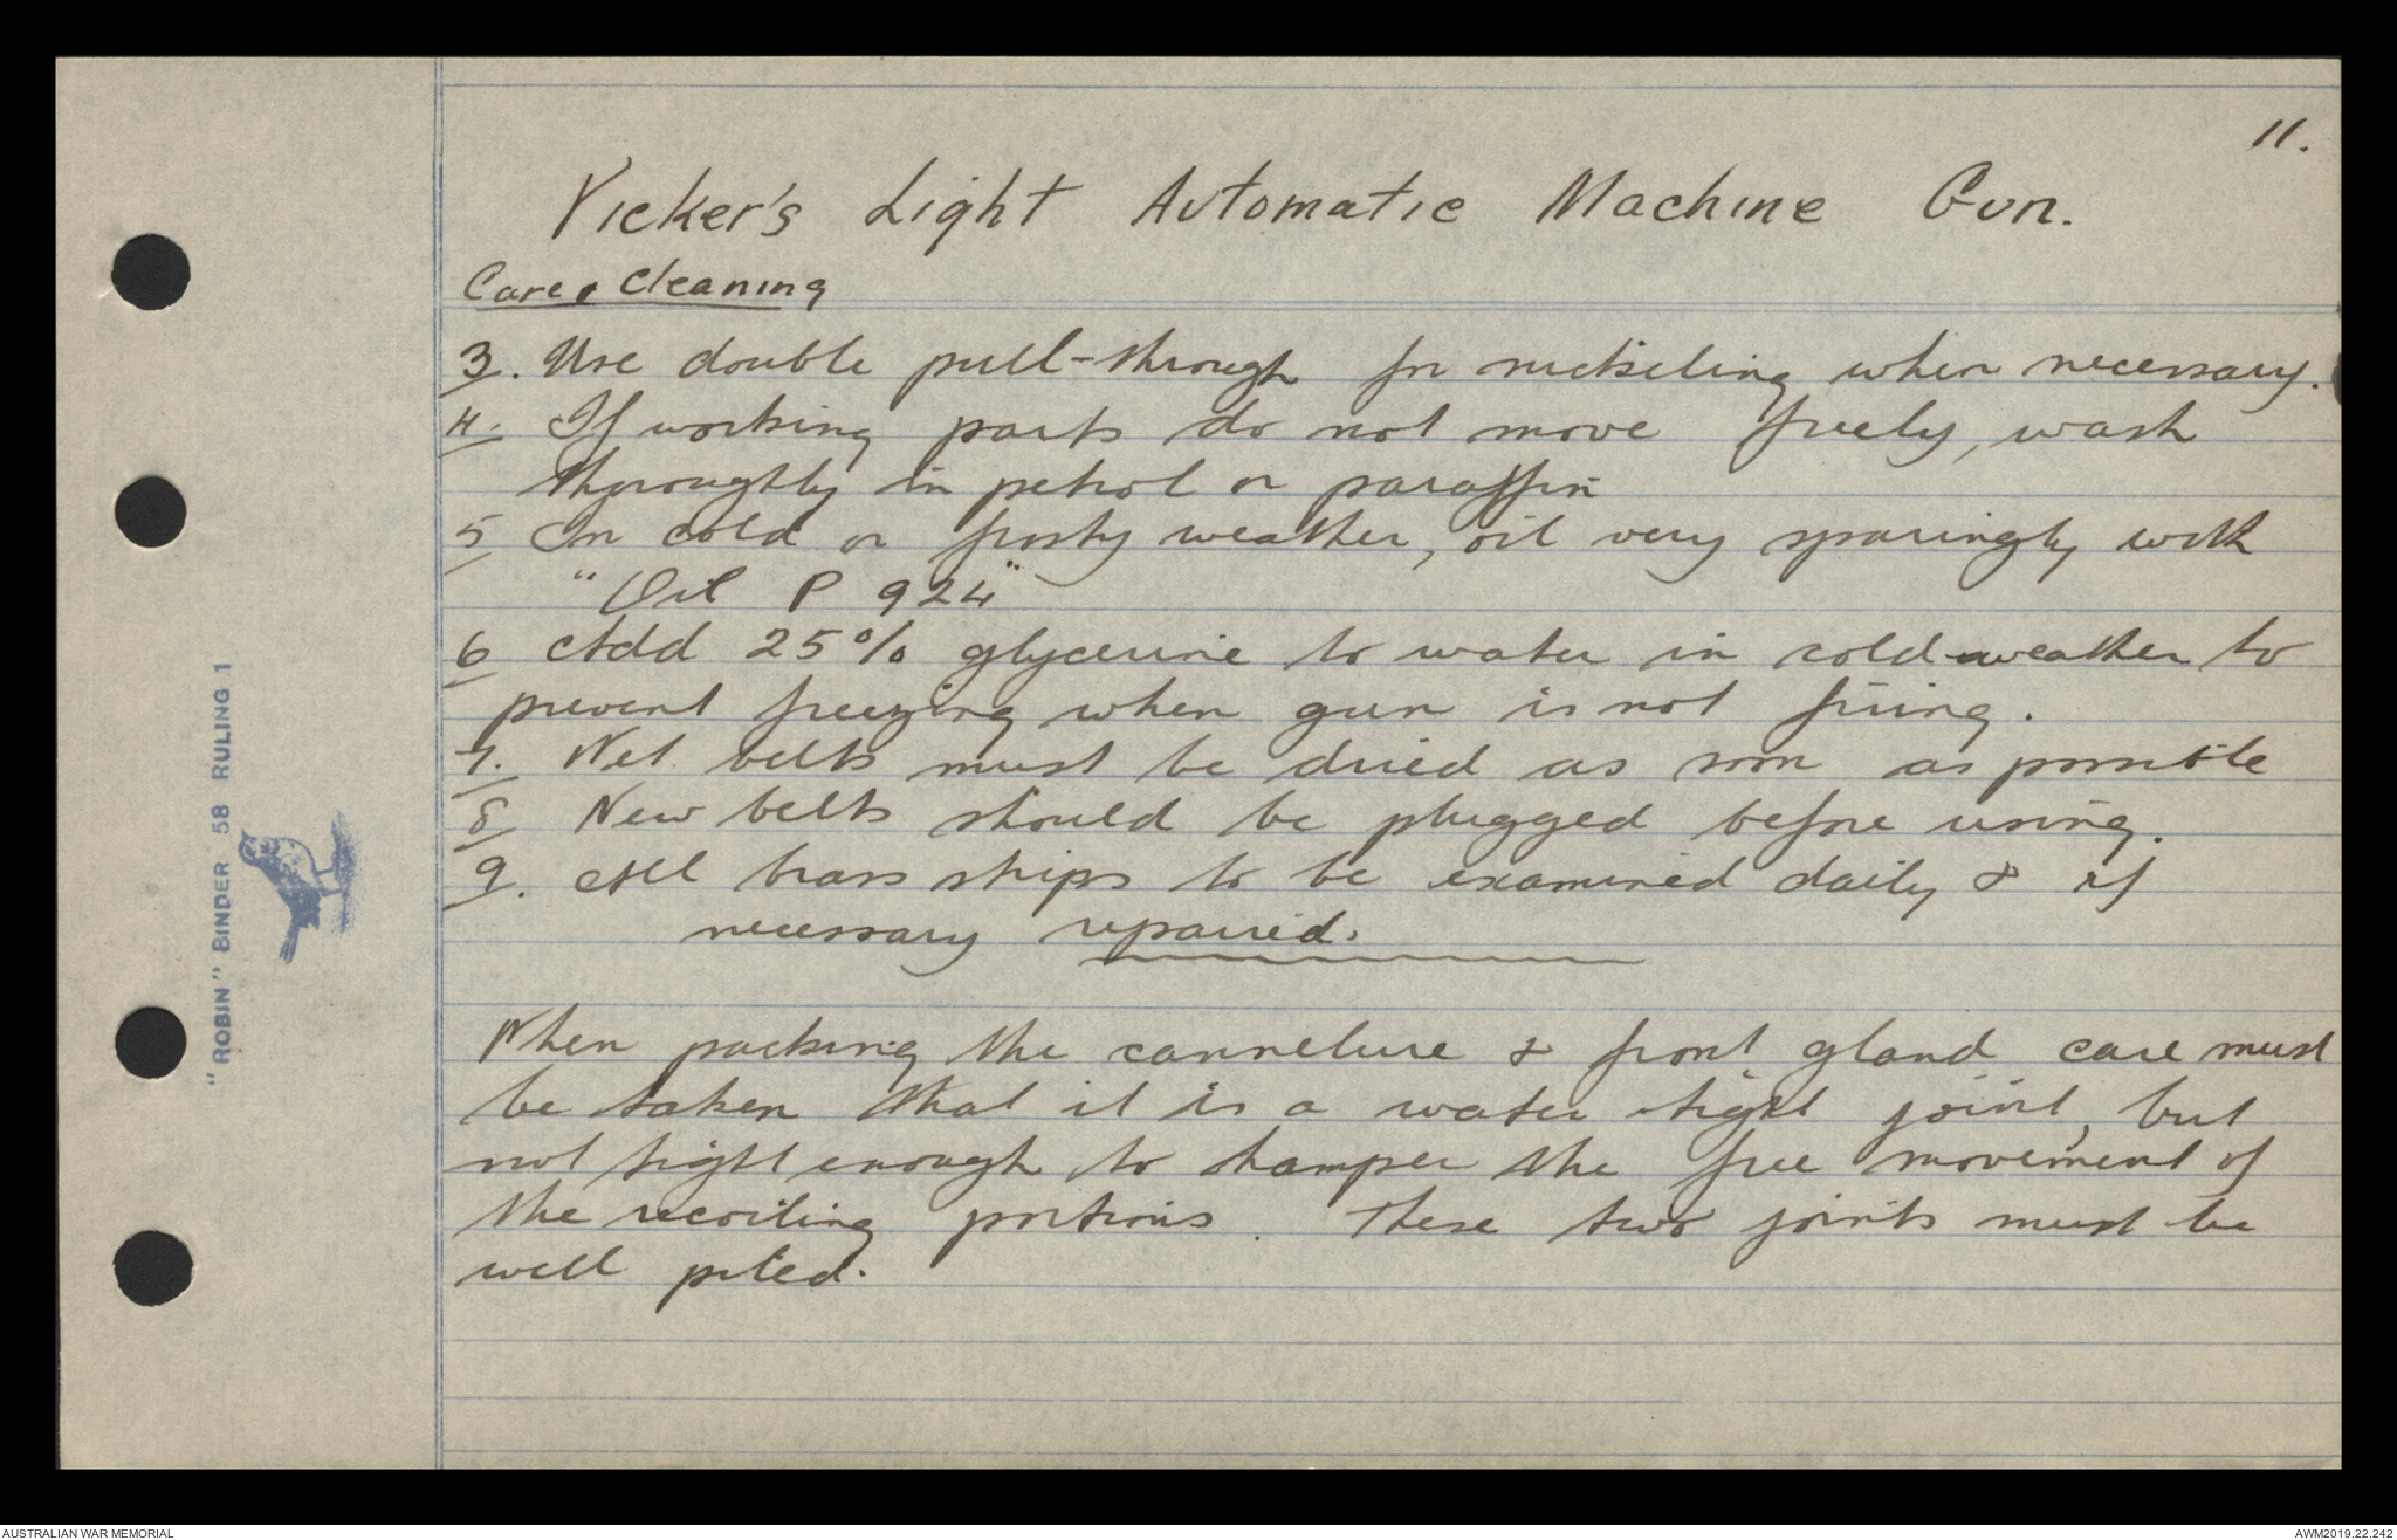 11.
Vicker's Light Automatic Machine Gun.
Care & Cleaning
3. Use double pull-through for nickeling when necessary.
4. If working parts do not move freely, wash
thoroughly in petrol or paraffin
5 In cold or frosty weather, oil very sparingly with
"Oil P 924"
6 Add 25% glycerine to water in cold weather to
prevent freezing when gun is not firing.
7. Wet belts must be dried as soon as possible
8 New belts should be plugged before using.
9. All brass strips to be examined daily & if
necessary repaired.
When packing the cannelure & front gland care must
be taken that it is a water tight joint, but
not tight enough to hamper the free movement of
the recoiling portions. These two joints must be
well
"ROBIN" BINDER 58 RULING 1
AUSTRALIAN WAR MEMORIAL
AWM2019.22.242